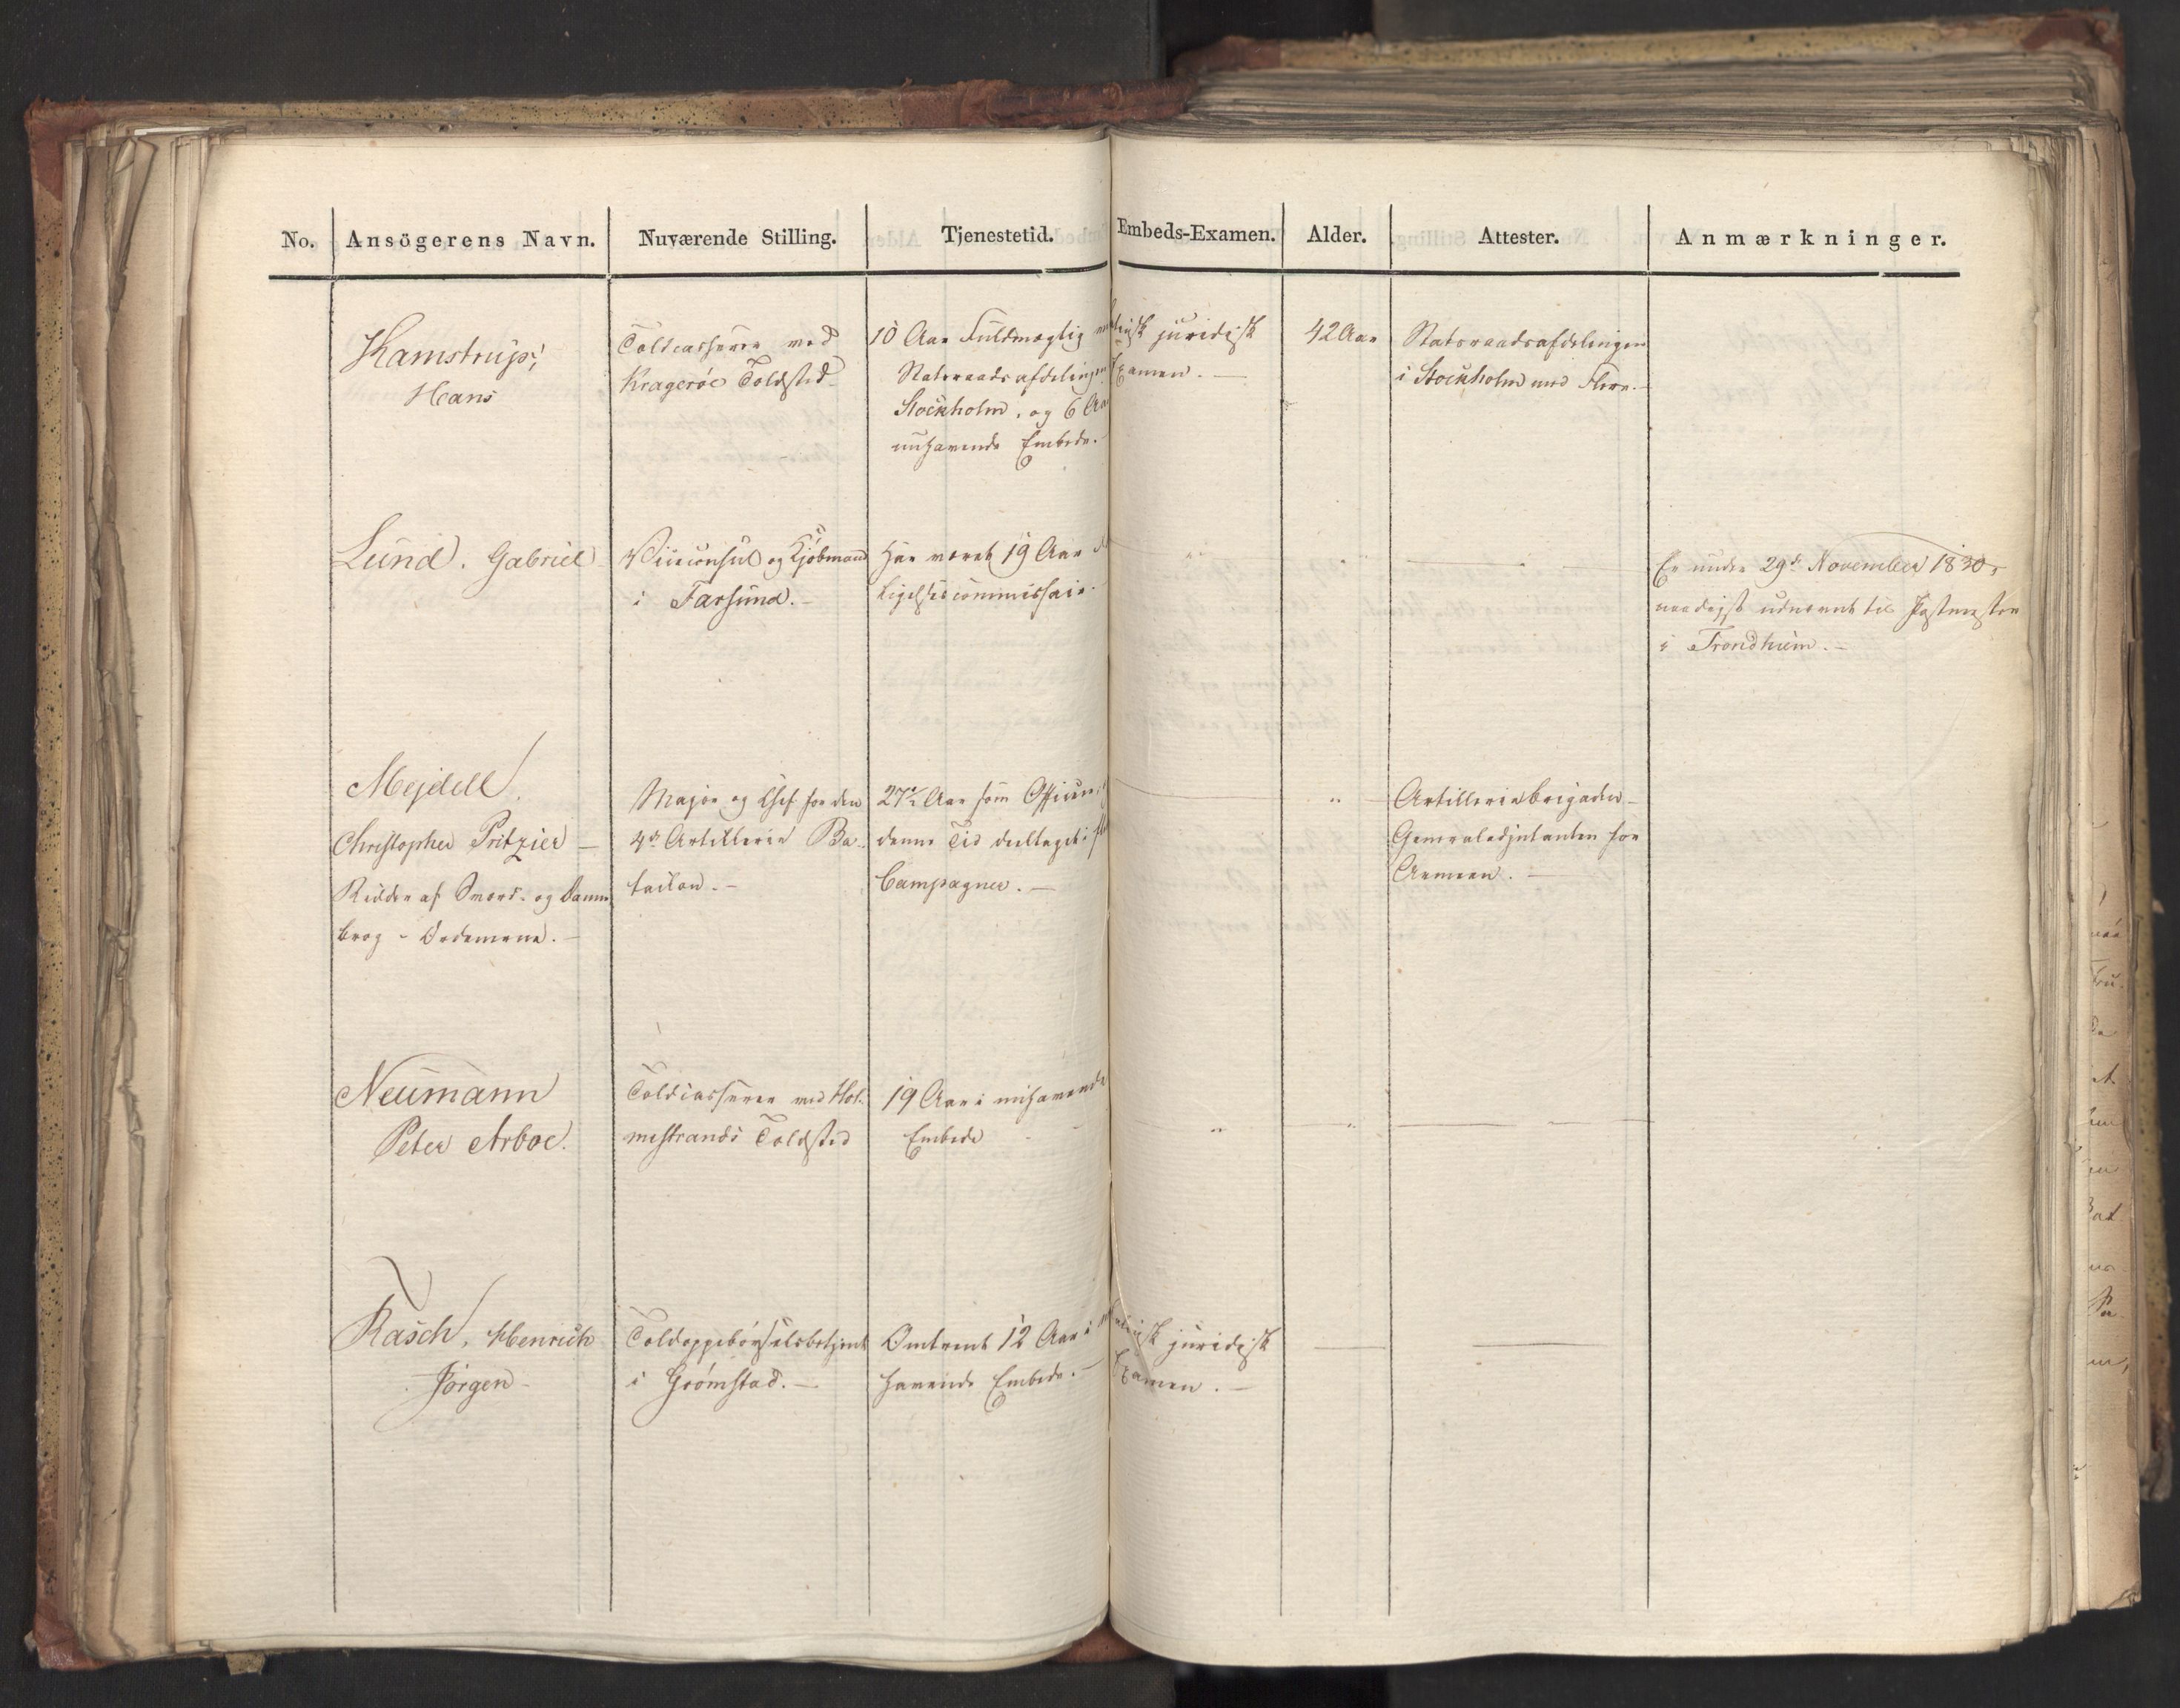 No. Ansögerens Navn. Nuværende Stilling. Tjenestetid. Embeds-Examen. Alder. Attester. Anmærkninger.
Kamstrup,
Hans
Toldcasserer ved
Kragerøe Toldsted.
10 Aar Fuldmægtig
Statsraadsafdelingen
Stockholm, og 6 Aar
nuhavende Embede.
juridisk
Examen. —
42 Aar
Statsraadsafdelingen
i Stockholm med Flere. —
Lund. Gabriel
Viceconsul og Kjøbmand
i Farsund. —
Har været 19 Aar
ligelsescommissair. —
Er under 29de November 1830,
naadigst udnævnt til Postmester
i Trondhiem. —
Mejdell,
Christopher Pritzier —
Ridder af Sværd- og Danne
brog - Ordenerne. —
Major og Chef for den
4de Artillerie Ba-
tailon. —
27½ Aar som Officier,
denne Tid deeltaget i
Campagner. —
Artilleriebrigaden —
Generaladjutanten for
Armeen. —
Neumann
Peter Arboe.
Toldcasserer ved Hol-
mestrands Toldsted
19 Aar i nuhavende
Embede
Rasch, Henrich
Jörgen
Toldoppebørselsbetjent
i Grömstad. —
Omtrent 12 Aar i
havende Embede. —
juridisk
Examen. —